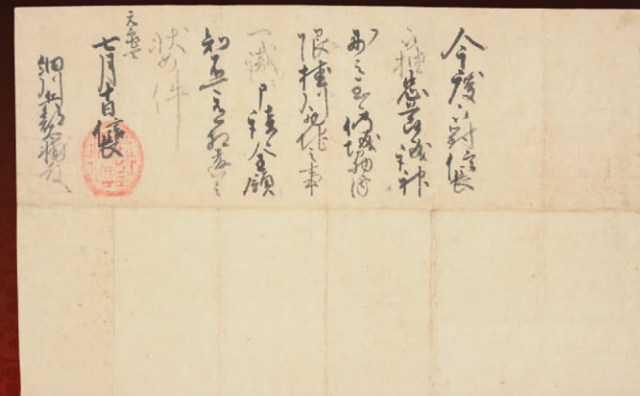 今度被対信長
被抽忠節候誠神
妙至候仍城州内
限桂川西地之事
一識申談候全領
知不可有相違之
状如件
天正元
七月十日信長
細川兵部大輔殿